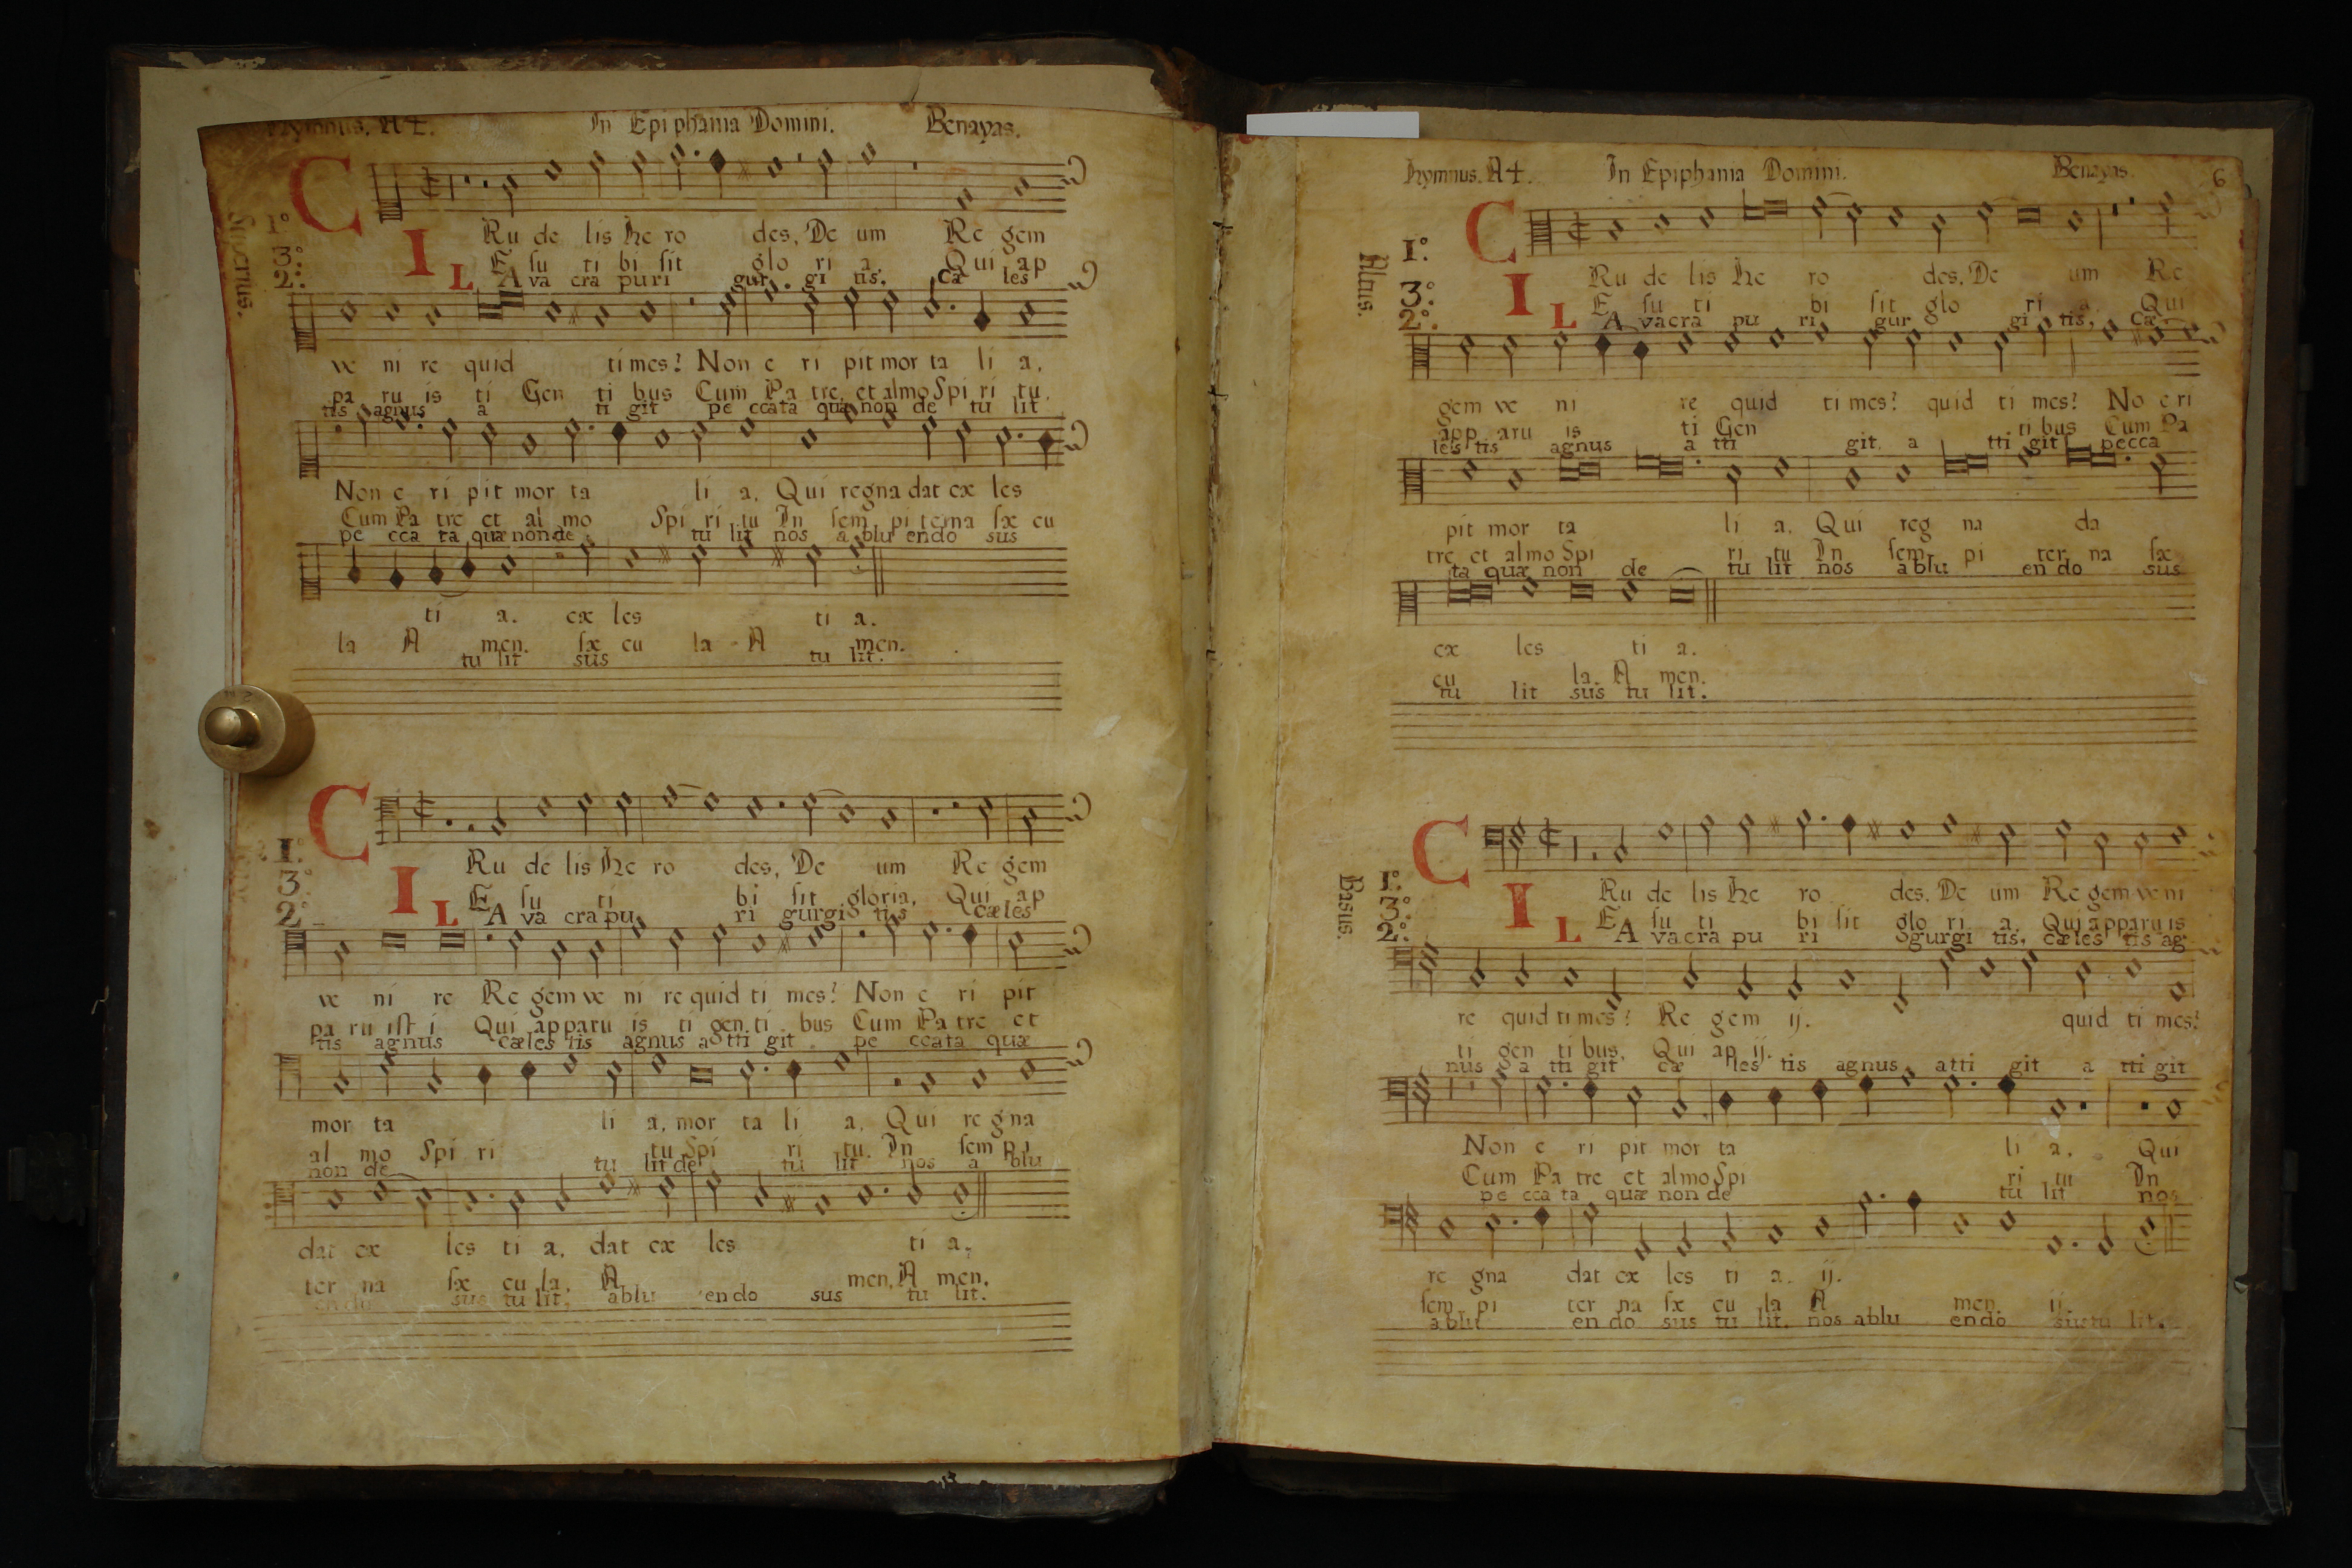 Hymnus. A4. In Epiphania Domini. Benayas.
C
1º Ru de lis He ro des, De um Re gem
3º I E su ti bi sit glo ri a, Qui ap
2º L A va cra pu ri gur gi tis, Cæ les
ve ni re quid times? Non e ri pit mor ta li a,
pa ru is ti Gen ti bus Cum Pa tre, et almo Spi ri tu,
tis agnus a ti git pe ccata quæ non de tu lit
Non e ri pit mor ta li a, Qui regna dat cæ les
Cum Pa tre et al mo Spi ri tu In sem pi terna sæ cu
pe cca ta quæ non de tu lit nos a blu endo sus
ti a. cæ les ti a.
la A men. sæ cu la A men.
tu lit sus tu lit.
C
1º Ru de lis He ro des, De um Re gem
3º I E su ti bi sit gloria, Qui ap
2º L A va cra pu ri gurgi tis cæles
ve ni re Re gem ve ni re quid ti mes? Non e ri pit
pa ru ist i Qui apparu is ti gen ti bus Cum Pa tre et
tis agnus cæles tis agnus a tti git pe ccata quæ
mor ta li a, mor ta li a, Qui re gna
al mo Spi ri tu Spi ri tu. In sem pi
non de tu lit de tu lit nos a blu
dat cæ les ti a, dat cæ les ti a.
ter na sæ cu la. A men, A men.
endo sus tu lit. ablu endo sus tu lit.
Hymnus. A4. In Epiphania Domini. Benayas. 6
Altus.
C
1º. Ru de lis He ro des, De um Re
3º. I E su ti bi sit glo ri a, Qui
2º. L A vacra pu ri gur gi tis, Cæ
gem ve ni re quid ti mes? quid ti mes? No e ri
app aru is ti Gen ti bus Cum Pa
les tis agnus a tti git a tti git pecca
pit mor ta li a, Qui reg na da
tre et almo Spi ri tu In sem pi ter na sæ
ta quæ non de tu lit nos ablu en do sus
cæ les ti a.
cu la. A men.
tu lit sus tu lit.
Basus.
C
1º. Ru de lis He ro des, De um Re gem ve ni
3º. I E su ti bi sit glo ri a, Qui apparu is
2º. L A vacra pu ri gurgi tis, cæles tis ag
re quid times? Re gem ij. quid ti mes?
ti gen ti bus, Qui ap ij.
nus a tti git cæ les tis agnus atti git a tti git
Non e ri pit mor ta li a. Qui
Cum Pa tre et almo Spi ri tu In
pe cca ta quæ non de tu lit nos
re gna dat cæ les ti a. ij.
sem pi ter na sæ cu la A men. ij.
ablu en do sus tu lit, nos ablu endo sustu lit.